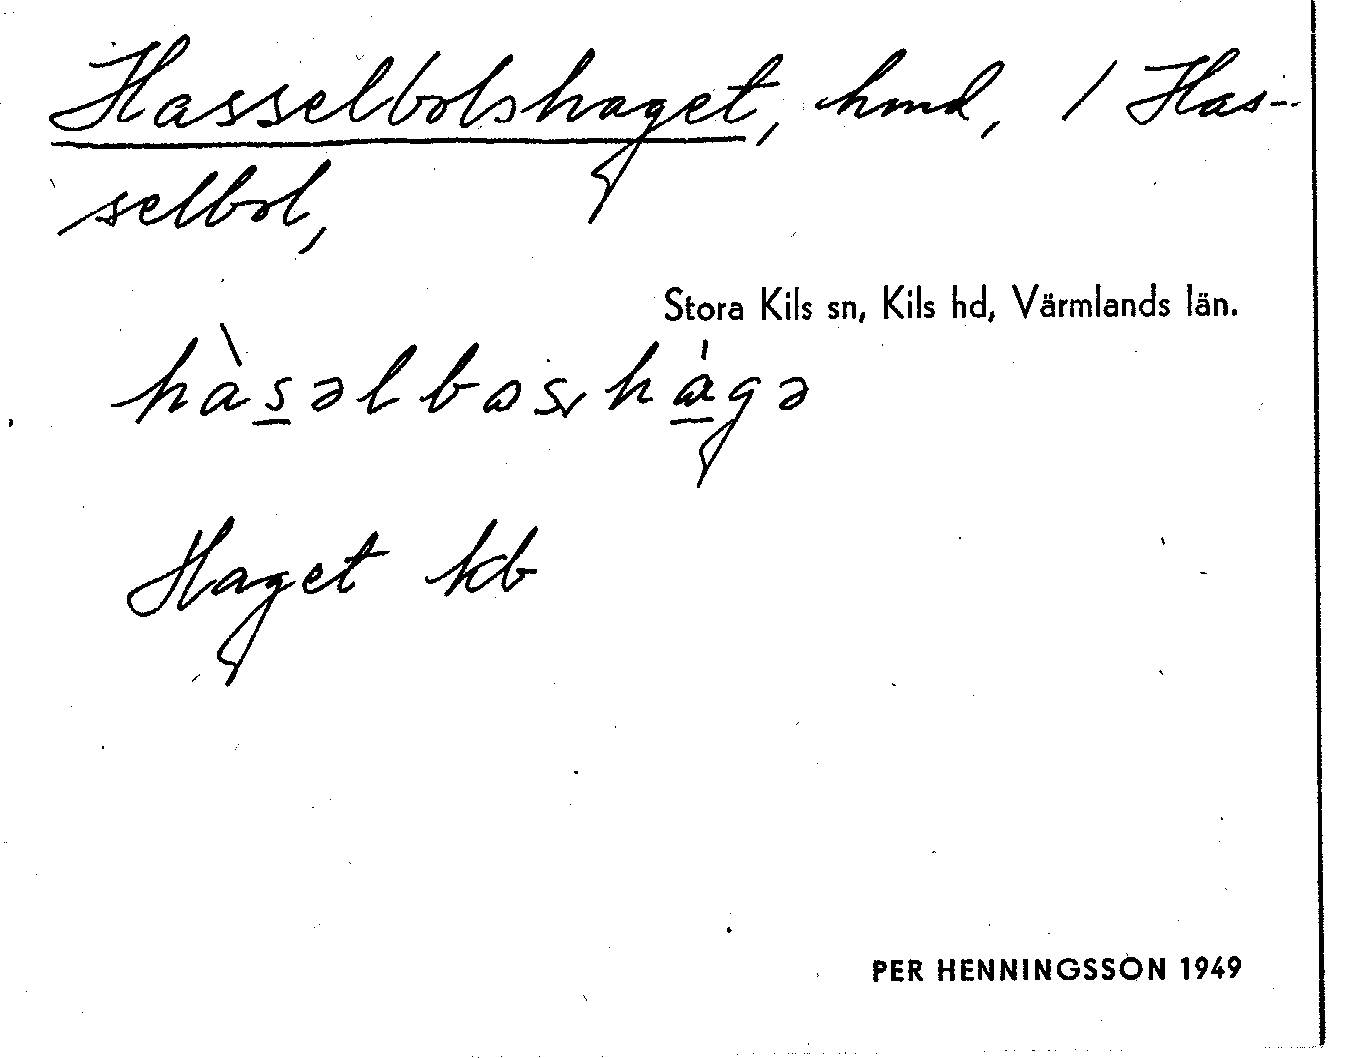 Hasselbolshaget, hmd, / Has-
selbol,
Stora Kils sn, Kils hd, Värmlands län.
hàsəlbosₓhágə
Haget kb
PER HENNINGSSON 1949